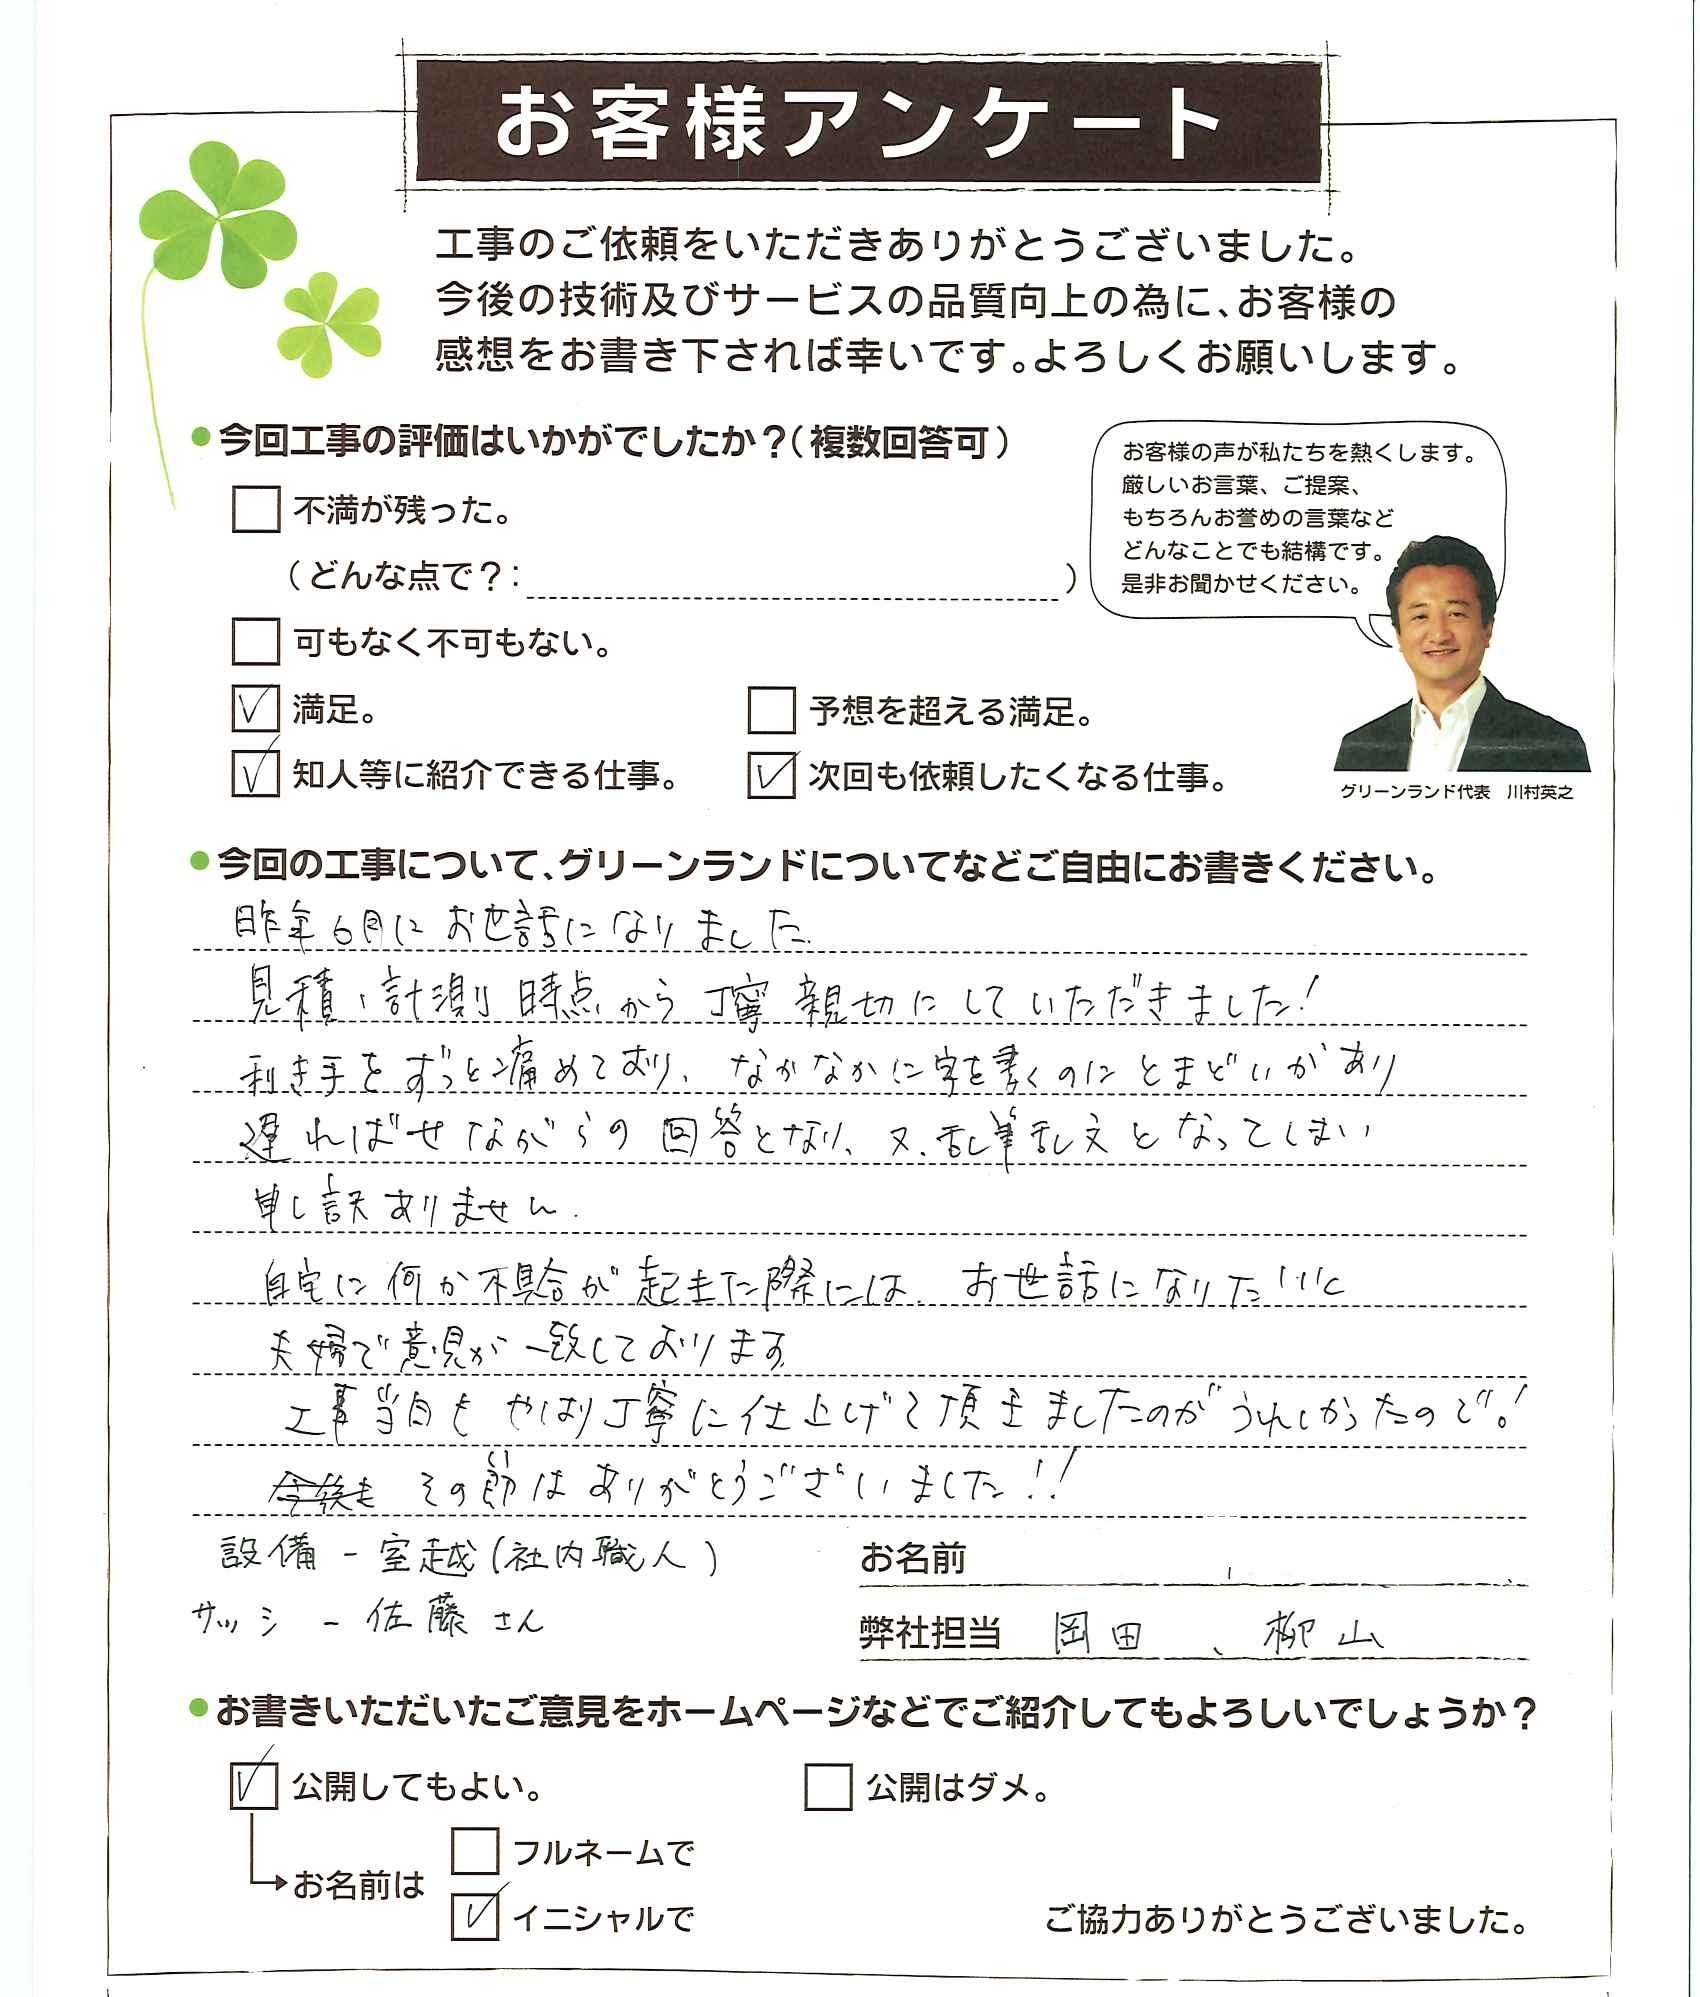 お客様アンケート
工事のご依頼をいただきありがとうございました。
今後の技術及びサービスの品質向上の為に、お客様の
感想をお書き下されば幸いです。よろしくお願いします。
●今回工事の評価はいかがでしたか？（複数回答可）
不満が残った。
（どんな点で？：　）
可もなく不可もない。
満足。
予想を超える満足。
知人等に紹介できる仕事。
次回も依頼したくなる仕事。
お客様の声が私たちを熱くします。
厳しいお言葉、ご提案、
もちろんお誉めの言葉など
どんなことでも結構です。
是非お聞かせください。
グリーンランド代表　川村英之
●今回の工事について、グリーンランドについてなどご自由にお書きください。
昨年6月にお世話になりました.
見積、計測時点から丁寧親切にしていただきました！
利き手をずっと痛めており、なかなかに字を書くのにとまどいがあり
遅ればせながらの回答となり、又、乱筆乱文となってしまい
申し訳ありません.
自宅に何か不具合が起きた際には、お世話になりたいと
夫婦で意見が一致しております
工事当日もやはり丁寧に仕上げて頂きましたのがうれしかったので！
今後も その節はありがとうございました！！
設備－室越(社内職人)
サッシ－佐藤さん
お名前
弊社担当　岡田、柳山
●お書きいただいたご意見をホームページなどでご紹介してもよろしいでしょうか？
公開してもよい。
公開はダメ。
お名前は
フルネームで
イニシャルで
ご協力ありがとうございました。